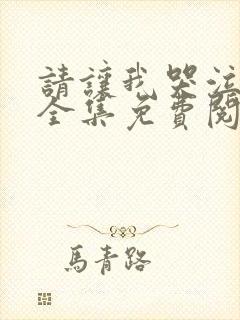 請讓我哭泣
全集免費閱
馬青路